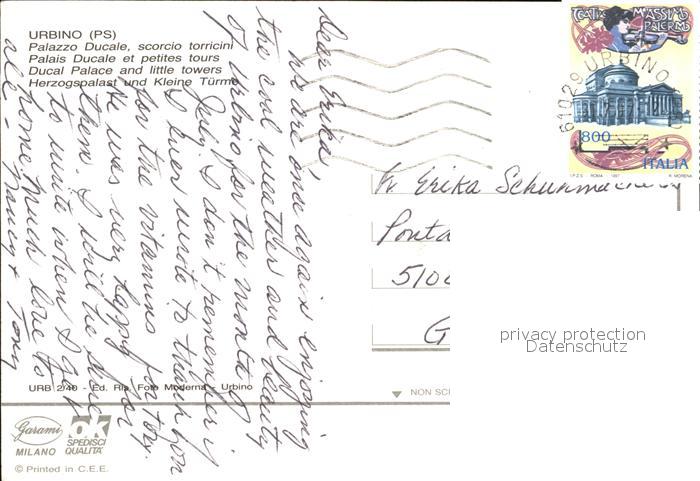 URBINO (PS)
Palazzo Ducale, scorcio torricini
Palais Ducale et petites tours
Ducal Palace and little towers
Herzogspalast und Kleine Türme
Dear Erika!
We are once again enjoying
the cool weather and beauty
of Urbino for the month of
July. I don't remember if
I ever wrote to thank you
for the vitamins for Tony.
He was very happy for
them. I will be sure
to write when I get
home. Much love to
all -
Tony
URB 2/40 - Ed. Rip. Foto Moderna - Urbino
Garami
MILANO
ok
SPEDISCI
QUALITA'
© Printed in C.E.E.
TEATRO MASSIMO
PALERMO
61029 URBINO
800
ITALIA
I.P.Z.S. - ROMA - 1997
R. MORENA
Erika Schuhmacher
Posta
510
G
NON SC
privacy protection
Datenschutz